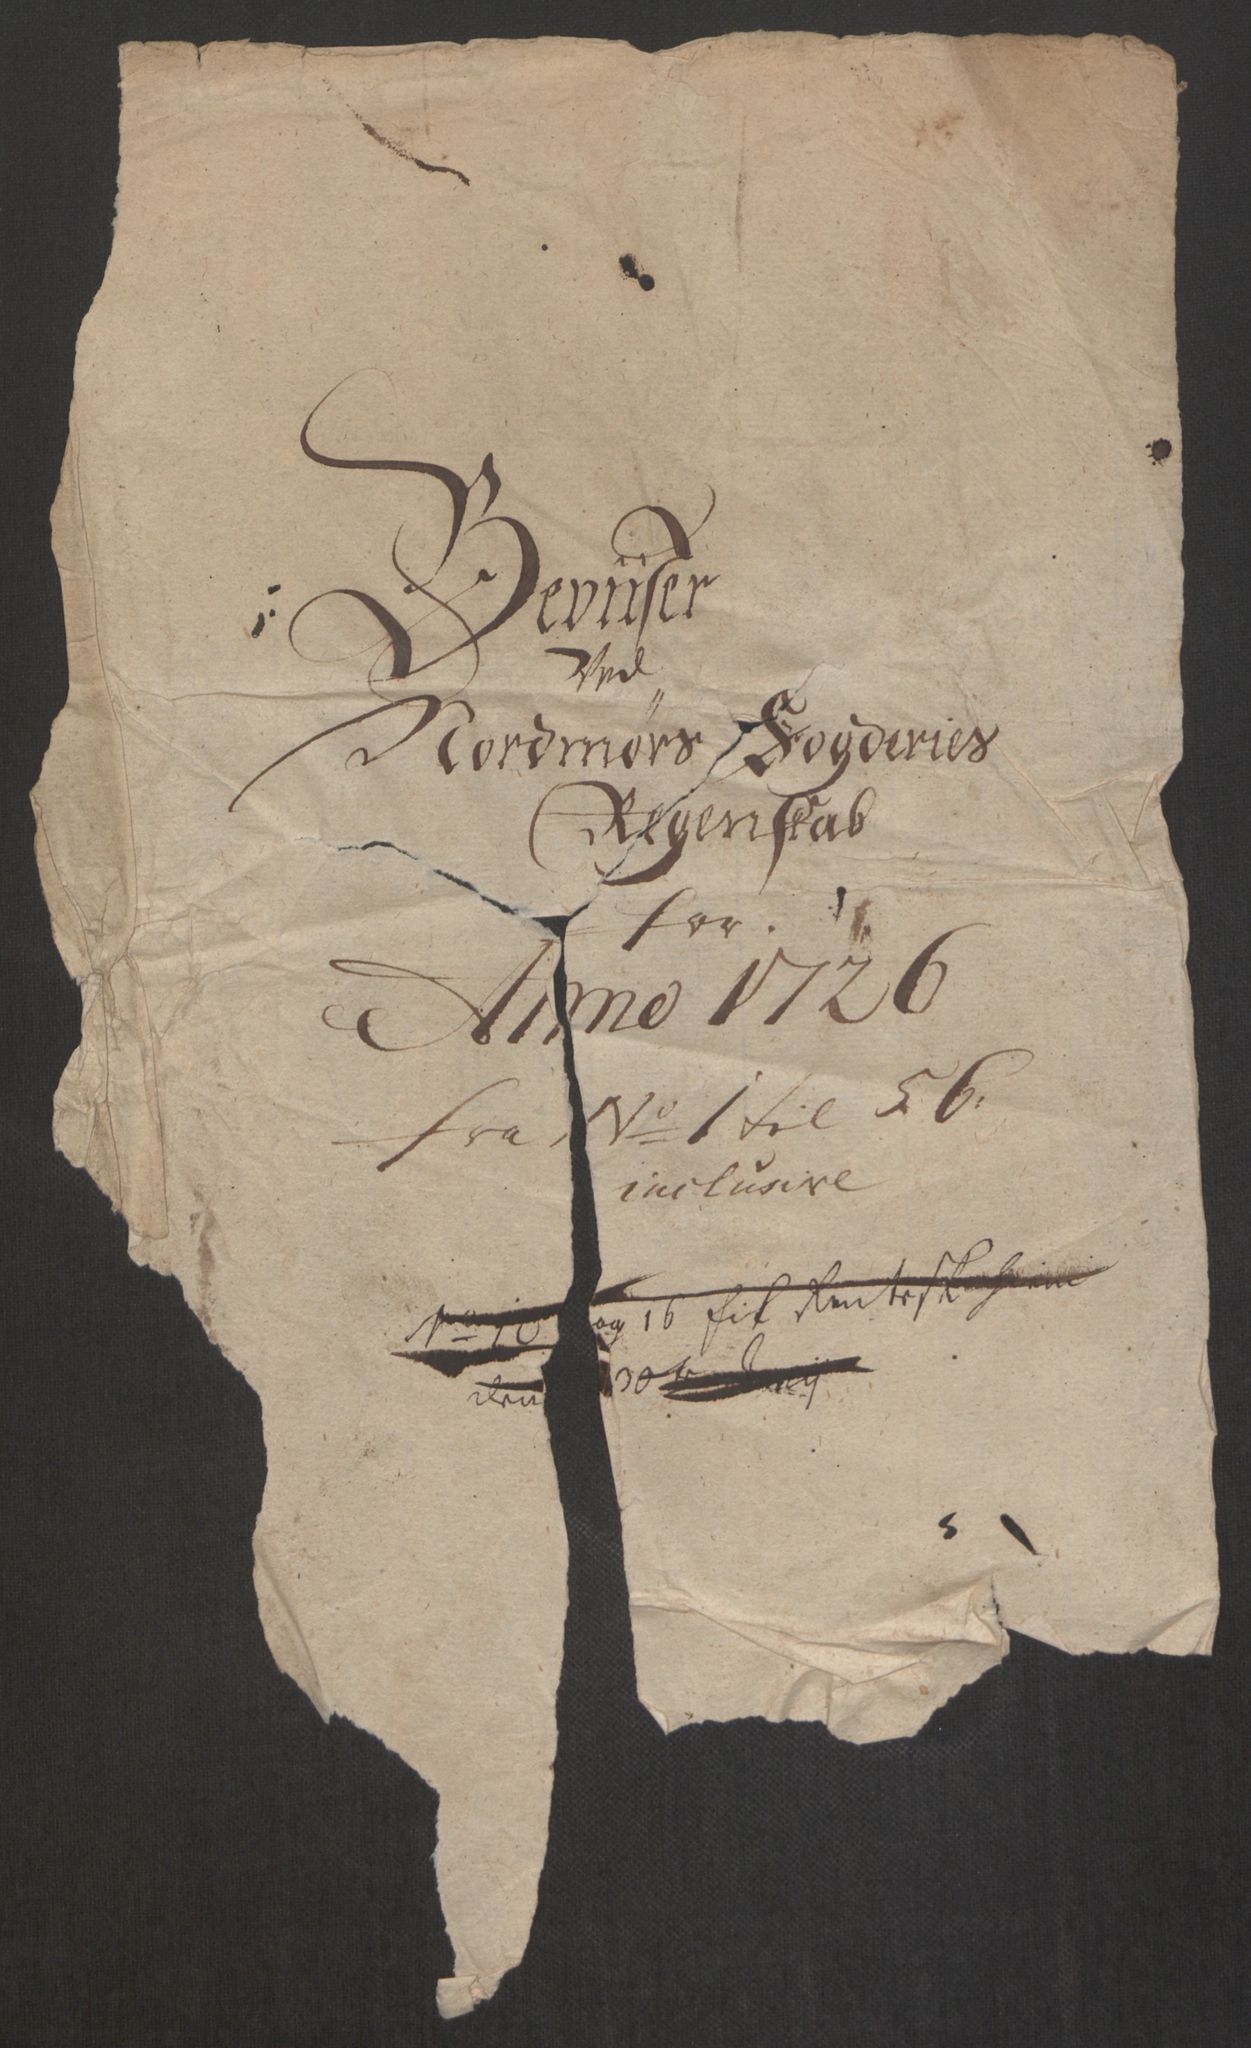 Beviiser
Ved
Nordmørs Fogderies
Regenskab
for.
Anno 1726
fra No 1 til 56.
inclusive
No 10 og 16 fik
den 30